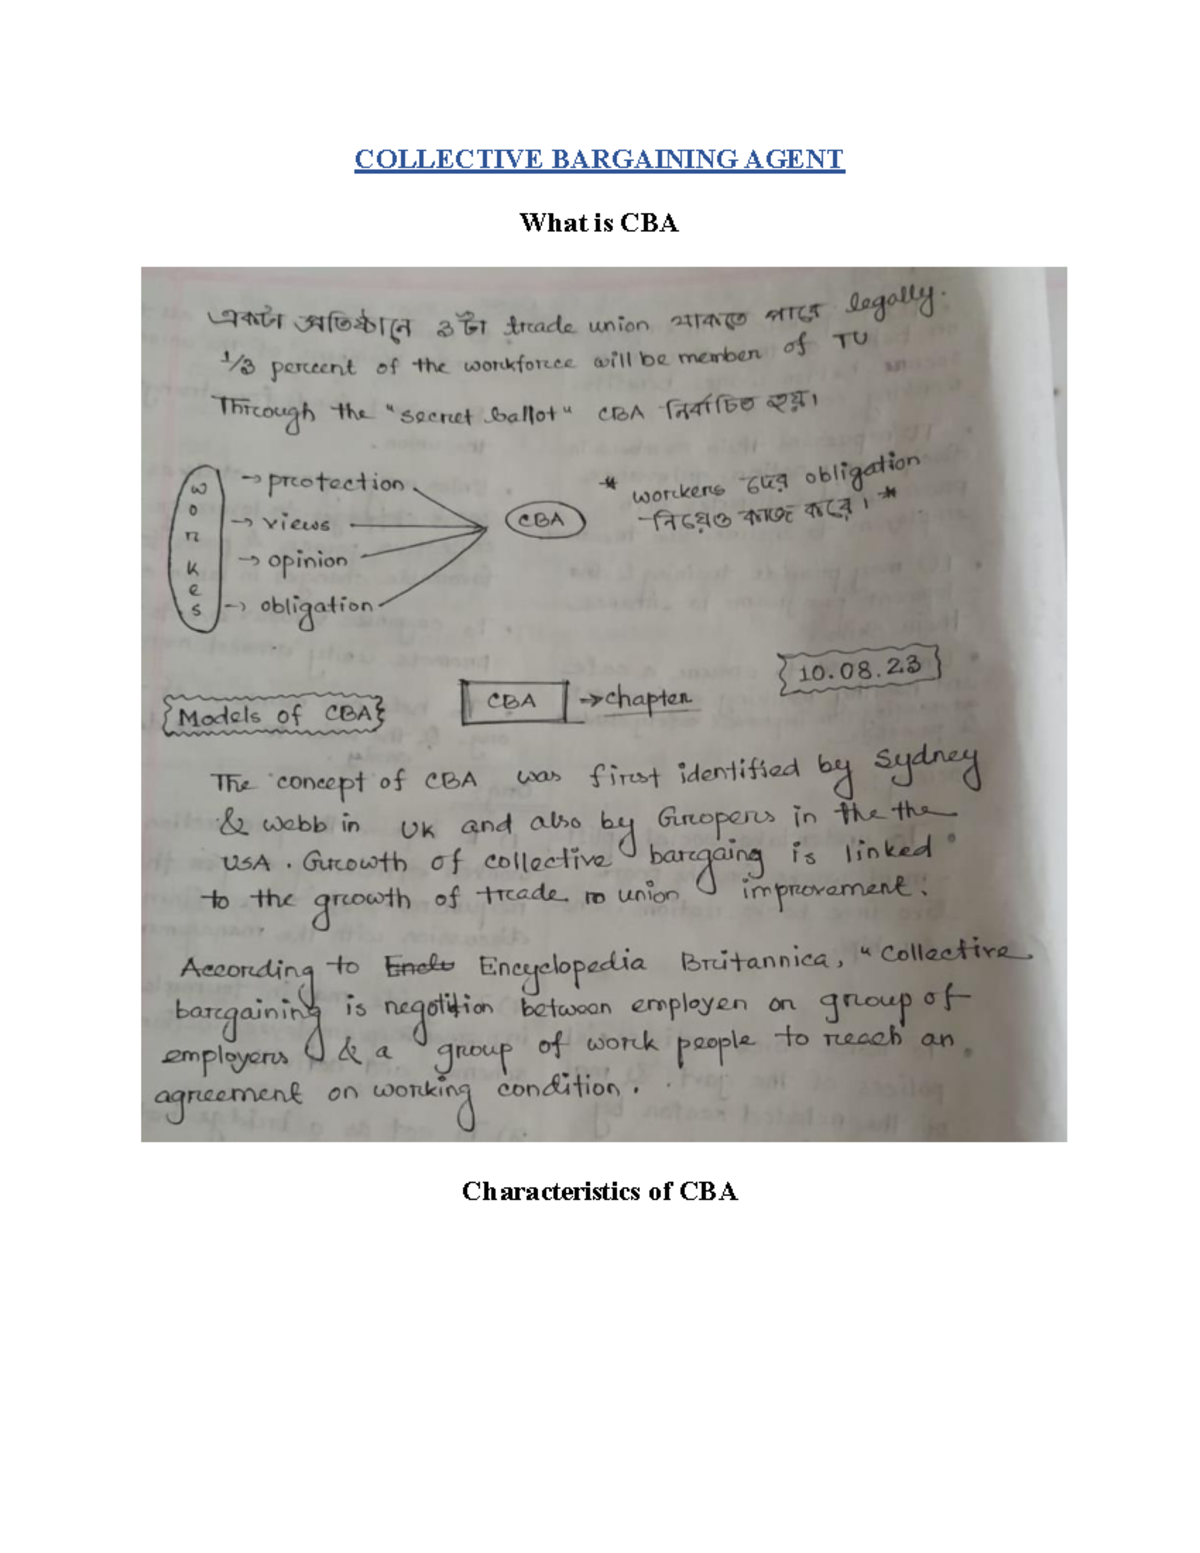 COLLECTIVE BARGAINING AGENT
What is CBA
একটা প্রতিষ্ঠানে ৩টা trade union থাকতে পারে legally.
1/3 percent of the workforce will be member of TU
Through the "secret ballot" CBA নির্বাচিত হয়।
workes
→ protection
→ views
→ opinion
→ obligation
CBA
* workers দের obligation
নিয়েও কাজ করে। *
10.08.23
CBA → chapter
Models of CBA
The concept of CBA was first identified by Sydney
& webb in UK and also by Gropers in the the
USA. Growth of collective bargaing is linked
to the growth of trade union improvement.
According to Encyclopedia Britannica, "Collective
bargaining is negotition between employer or group of
employers & a group of work people to reach an
agreement on working condition.
Characteristics of CBA